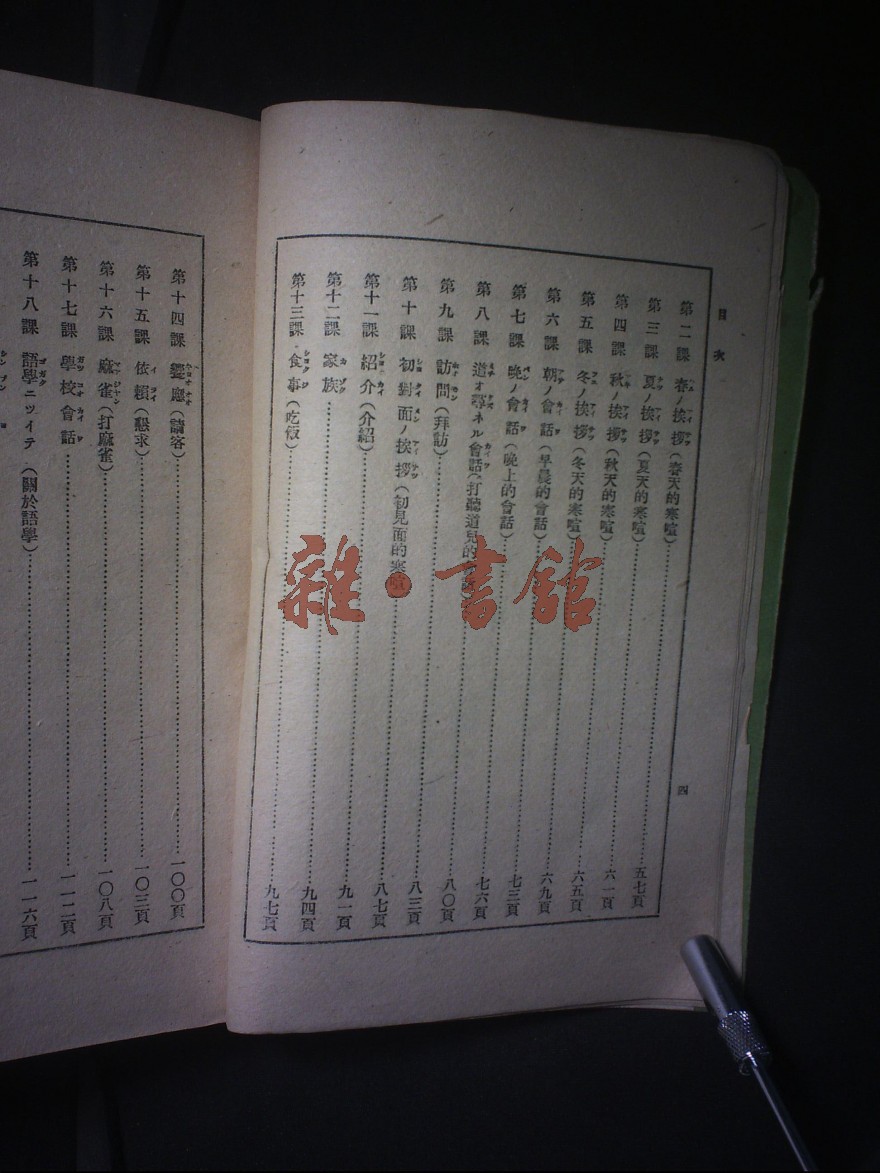 目次
第二課 春ノ挨拶(春天的寒喧)……五七頁
第三課 夏ノ挨拶(夏天的寒喧)……六一頁
第四課 秋ノ挨拶(秋天的寒喧)……六五頁
第五課 冬ノ挨拶(冬天的寒喧)……六九頁
第六課 朝ノ會話(早晨的會話)……七三頁
第七課 晚ノ會話(晚上的會話)……七六頁
第八課 道オ尋ネル會話(打聽道兒的……八〇頁
第九課 訪問(拜訪)……八三頁
第十課 初對面ノ挨拶(初見面的寒喧)……八七頁
第十一課 紹介(介紹)……九一頁
第十二課 家族……九四頁
第十三課 食事(吃飯)……九七頁
四
第十四課 饗應(請客)……一〇〇頁
第十五課 依賴(懇求)……一〇三頁
第十六課 麻雀(打麻雀)……一〇八頁
第十七課 學校會話……一一二頁
第十八課 語學ニツイテ(關於語學)……一一六頁
雜·書館